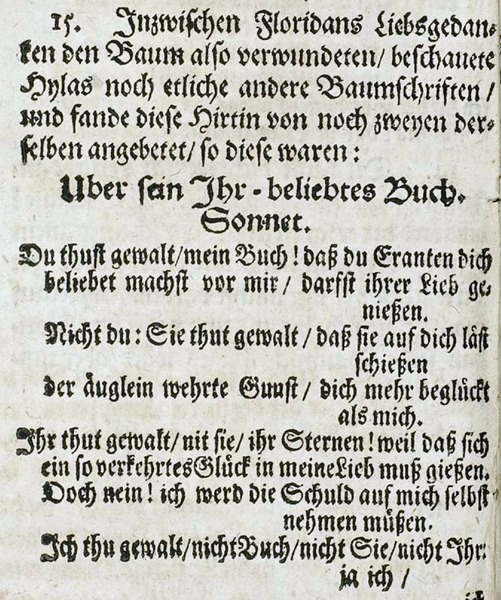 15. Inzwischen Floridans Liebsgedan-
ken den Baum also verwundeten/ beschauete
Hylas noch etliche andere Baumschriften /
und fande diese Hirtin von noch zweyen der-
selben angebetet/ so diese waren:
Uber sein Ihr-beliebtes Buch.
Sonnet.
Du thust gewalt/mein Buch! daß du Eranten dich
beliebet machst vor mir/ darfst ihrer Lieb ge-
nießen.
Nicht du: Sie thut gewalt/ daß sie auf dich läst
schießen
der äuglein wehrte Gunst/ dich mehr beglückt
als mich.
Ihr thut gewalt/nit sie/ ihr Sternen! weil daß sich
ein so verkehrtes Glück in meine Lieb muß gießen.
Doch nein! ich werd die Schuld auf mich selbst
nehmen müßen.
Ich thu gewalt/nicht Buch/nicht Sie/nicht Ihr:
ja ich /